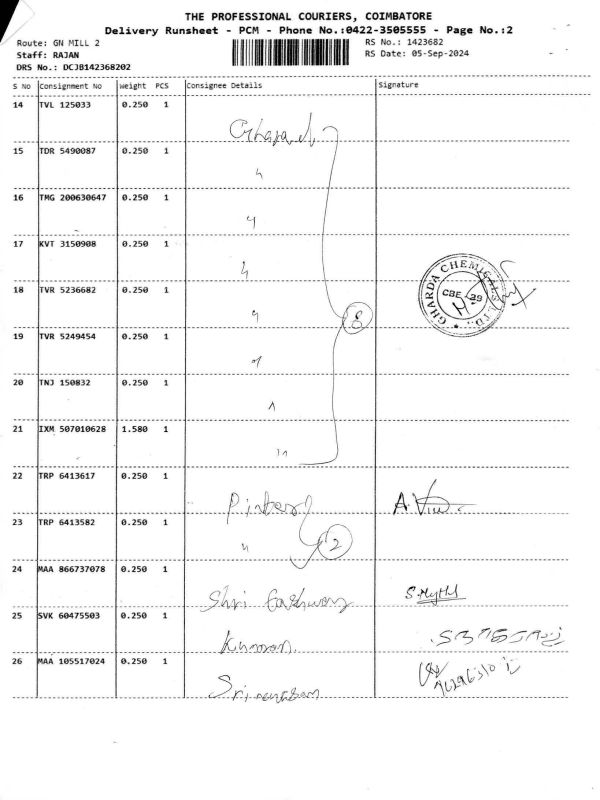 THE PROFESSIONAL COURIERS, COIMBATORE
Delivery Runsheet - PCM - Phone No.:0422-3505555 - Page No.:2
Route: GN MILL 2
RS No.: 1423682
Staff: RAJAN
RS Date: 05-Sep-2024
DRS No.: DCJB142368202
S No Consignment No Weight PCS Consignee Details Signature
14 TVL 125033 0.250 1
15 TDR 5490087 0.250 1
16 TMG 200630647 0.250 1
17 KVT 3150908 0.250 1
GHARDA CHEMICALS LTD.
CBE
18 TVR 5236682 0.250 1
8
19 TVR 5249454 0.250 1
20 TNJ 150832 0.250 1
21 IXM 507010628 1.580 1
22 TRP 6413617 0.250 1
23 TRP 6413582 0.250 1
2
24 MAA 866737078 0.250 1
Shri
25 SVK 60475503 0.250 1
Kumaran
26 MAA 105517024 0.250 1